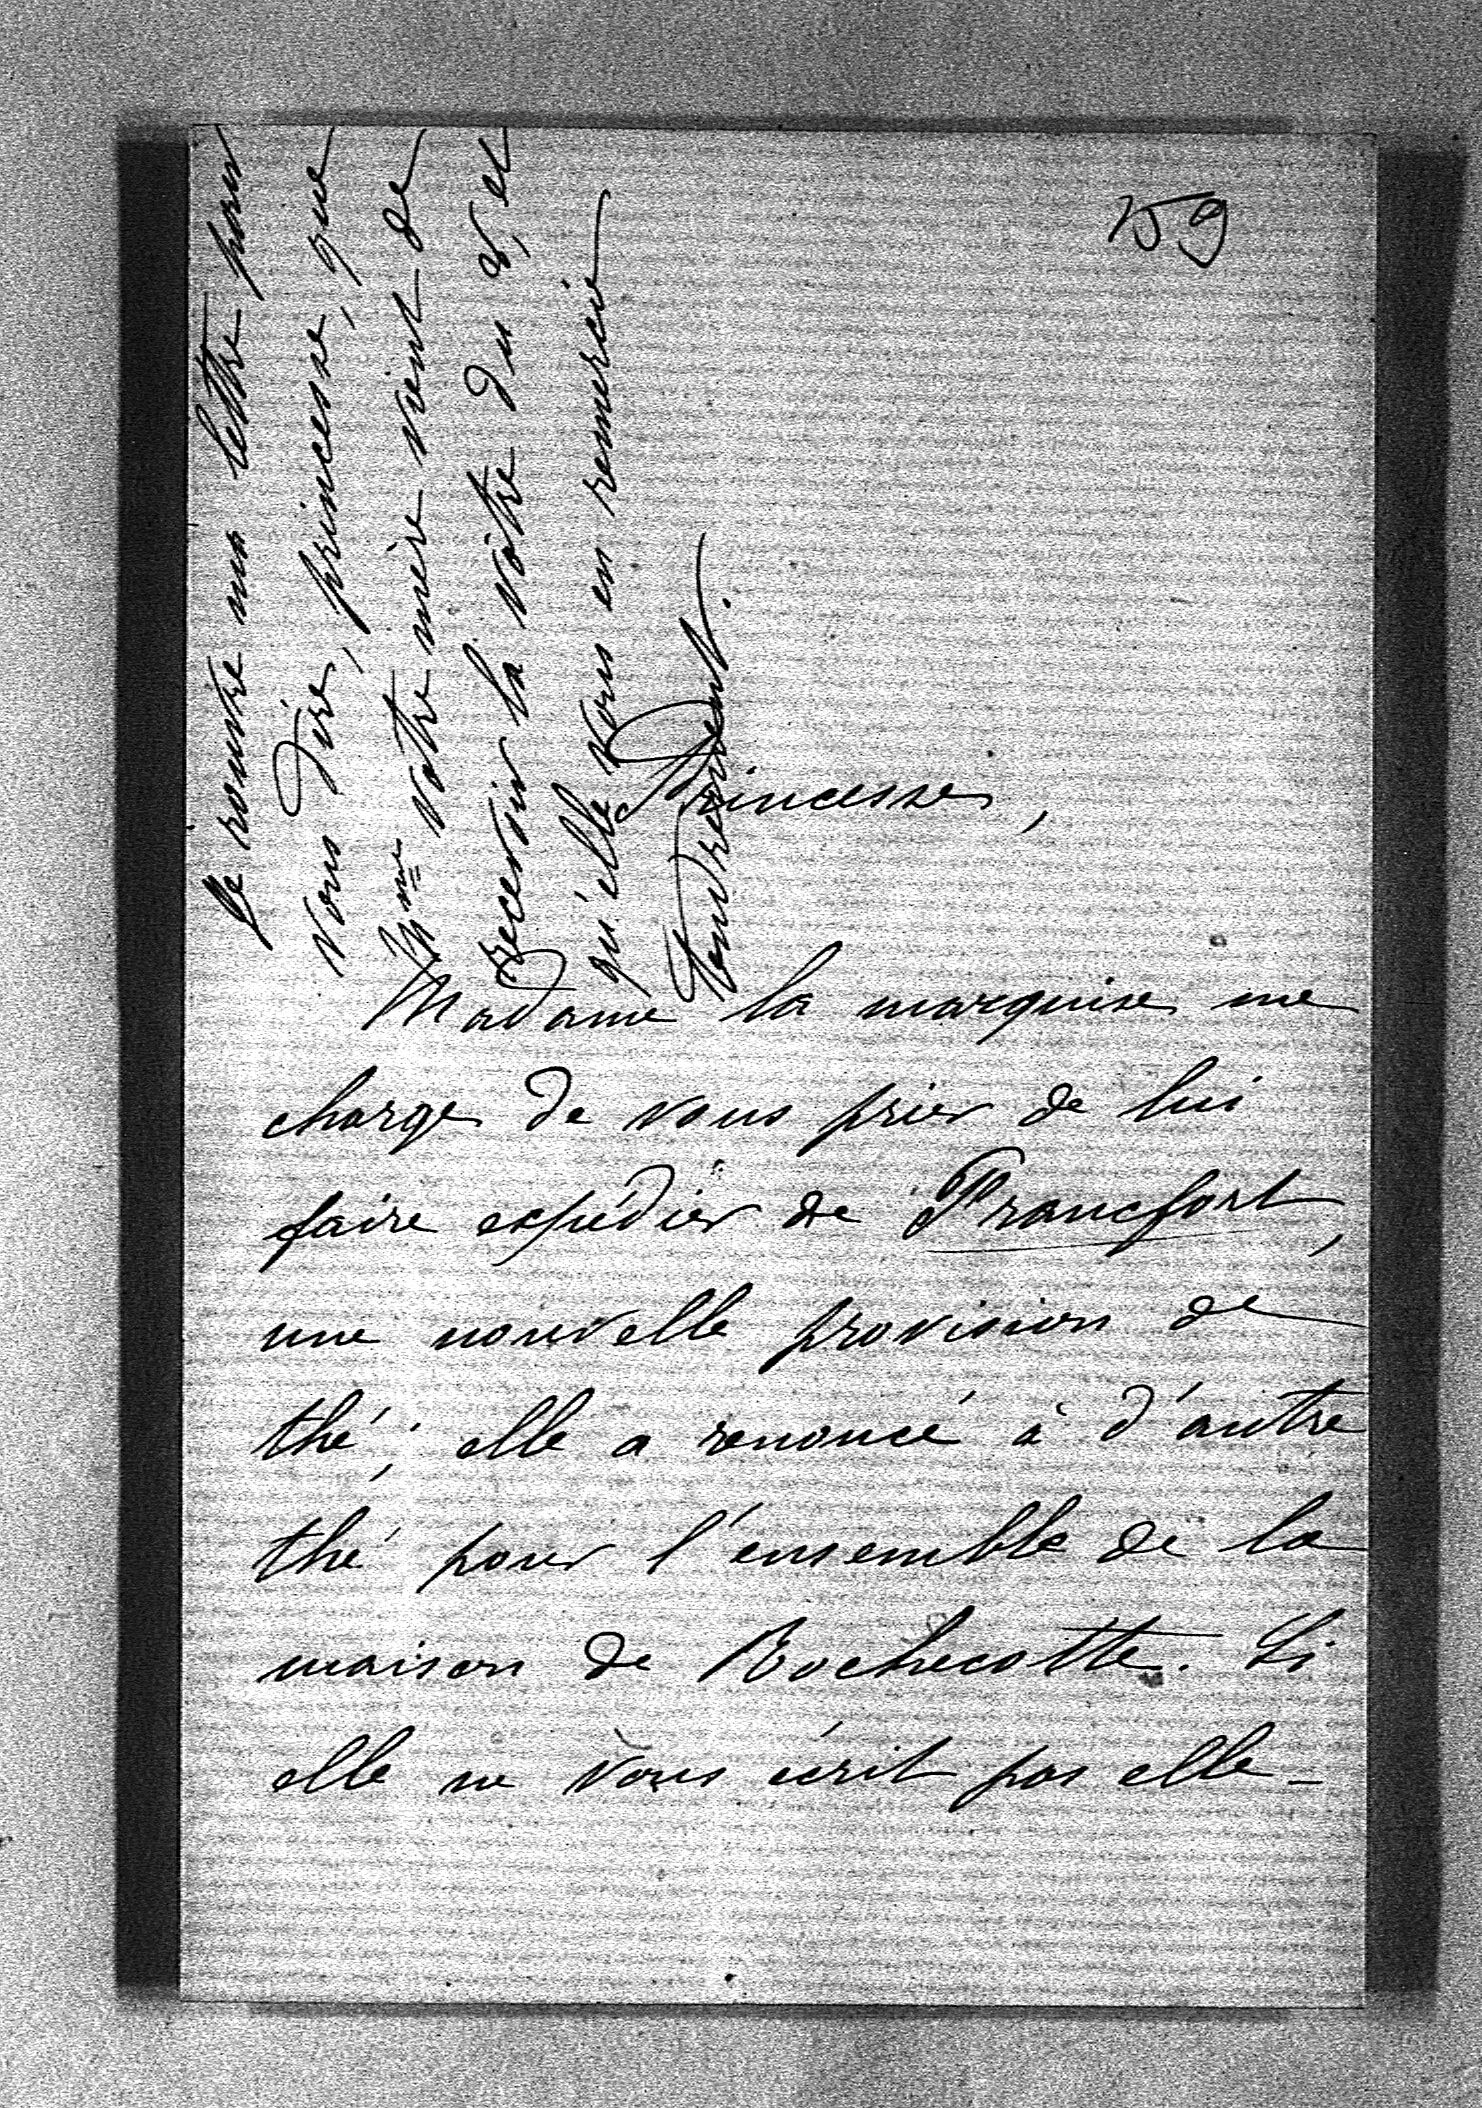 59
Je rouvre ma lettre pour
vous dire, princesse, que
Mme votre mère vient de
recevoir la vôtre du 8, et
qu'elle vous en remercie
tendrement.
Princesse,
Madame la marquise me
charge de vous prier de lui
faire expédier de Francfort,
une nouvelle provision de
thé; elle a renoncé à d'autre
thé pour l'ensemble de la
maison de Rochecotte. Si
elle ne vous écrit pas elle-